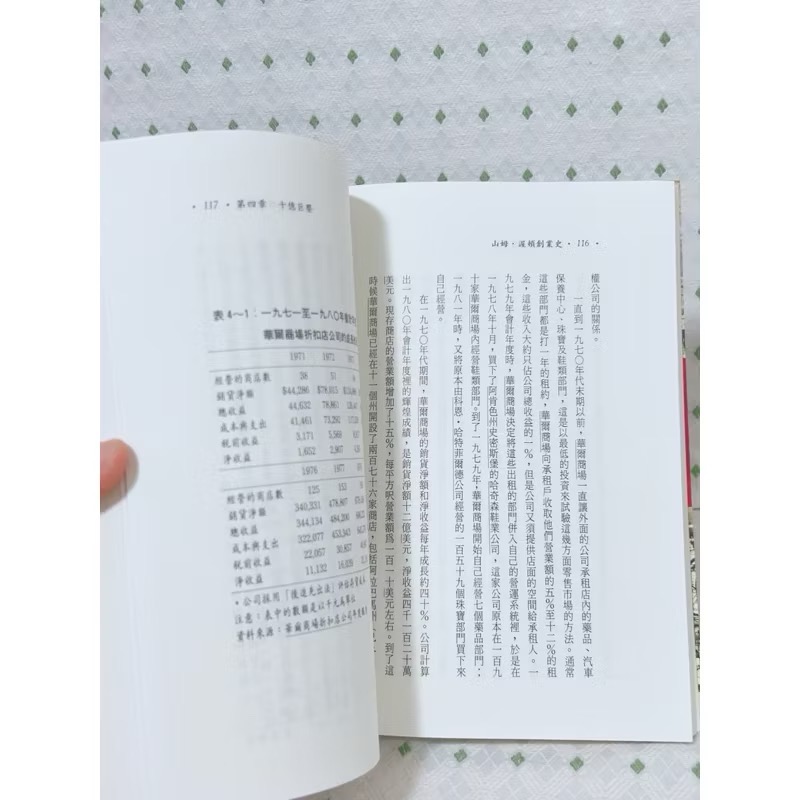 山姆·渥頓創業史 • 116 •
權公司的關係。
一直到一九七〇年代末期以前，華爾商場一直讓外面的公司承租店內的藥品、汽車
保養中心、珠寶及鞋類部門，這是以最低的投資來試驗這幾方面零售市場的方法。通常
這些部門都是打一年的租約，華爾商場向承租戶收取他們營業額的五%至十二%的租
金，這些收入大約只佔公司總收益的一%，但是公司又須提供店面的空間給承租人。一
九七九年會計年度時，華爾商場決定將這些出租的部門併入自己的營運系統裡，於是在
一九七八年十月，買下了阿肯色州史密斯堡的哈奇森鞋業公司，這家公司原本在一百九
十家華爾商場內經營鞋類部門。到了一九七九年，華爾商場開始自己經營七個藥品部門；
一九八一年時，又將原本由科恩·哈特菲爾德公司經營的一百五十九個珠寶部門買下來
自己經營。
在一九七〇年代期間，華爾商場的銷貨淨額和淨收益每年成長約四十%。公司計算
出一九八〇年會計年度裡的輝煌成績，是銷貨淨額十二億美元，淨收益四千一百二十萬
美元。現存商店的營業額增加了十五%，每平方呎營業額為一百一十美元左右。到了這
時候華爾商場已經在十一個州開設了兩百七十六家商店，包括阿拉巴馬州
• 117 • 第四章 十億巨擎
表4～1：一九七一至一九八〇年會計年
華爾商場折扣店公司的成長
1971 1972 1973
經營的商店數 38 51
銷貨淨額 $44,286 $78,015
總收益 44,632 78,861
成本與支出 41,461 73,292
稅前收益 3,171 5,569
淨收益 1,652 2,907
1976 1977
經營的商店數 125 153
銷貨淨額 340,331 478,807
總收益 344,134 484,200
成本與支出 322,077 453,343
稅前收益 22,057 30,857
淨收益 11,132 16,039
• 公司採用「後進先出法」評估存貨
注意：表中的數額是以千元為單位
資料來源：華爾商場折扣店公司年度